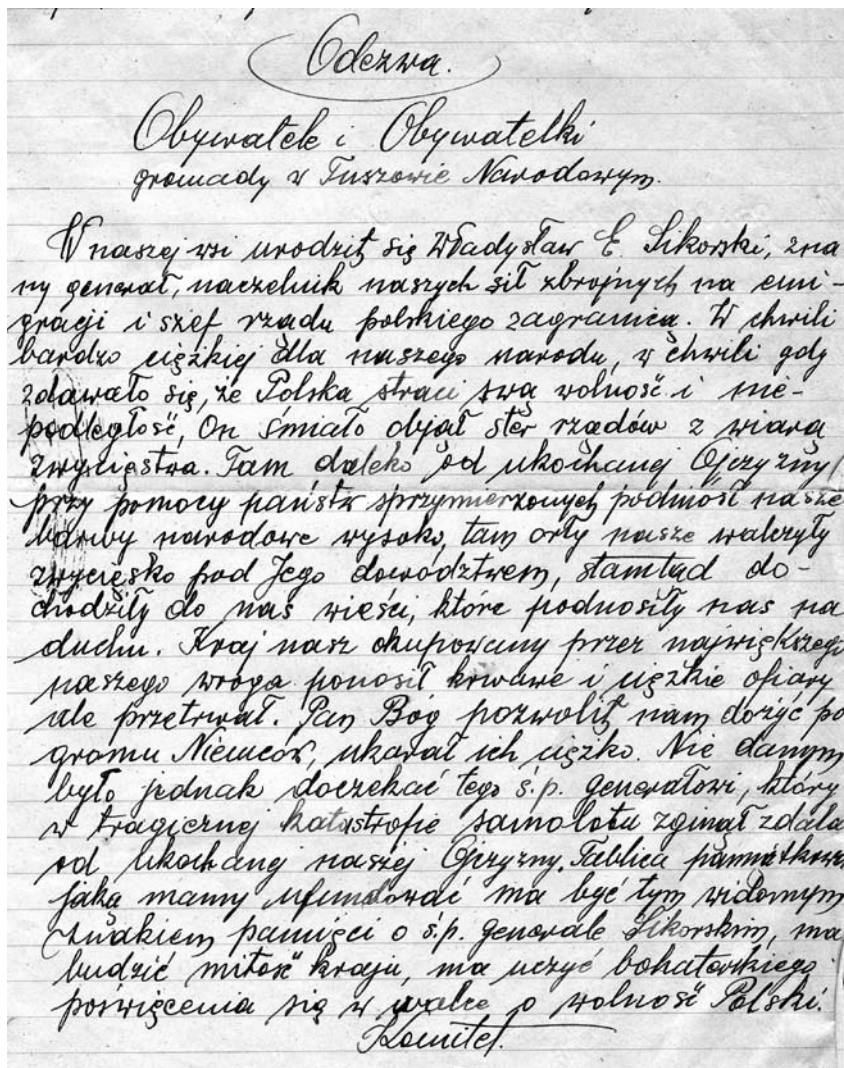 Odezwa.
Obywatele i Obywatelki
gromady w Tuszowie Narodowym.
W naszej wsi urodził się Władysław E. Sikorski, zna
ny generał, naczelnik naszych sił zbrojnych na emi-
gracji i szef rządu polskiego zagranicą. W chwili
bardzo ciężkiej dla naszego narodu, w chwili gdy
zdawało się, że Polska straci swą wolność i nie-
podległość, On śmiało objął ster rządów z wiarą
zwycięstwa. Tam daleko od ukochanej Ojczyzny
przy pomocy państw sprzymierzonych podniósł nasze
barwy narodowe wysoko, tam orły nasze walczyły
zwycięsko pod Jego dowództwem, stamtąd do-
chodziły do nas wieści, które podnosiły nas na
duchu. Kraj nasz okupowany przez największego
naszego wroga ponosił krwawe i ciężkie ofiary
ale przetrwał. Pan Bóg pozwolił nam dożyć po
gromu Niemców, ukarał ich ciężko. Nie danym
było jednak doczekać tego ś.p. generałowi, który
w tragicznej katastrofie samolotu zginął zdala
od ukochanej naszej Ojczyzny. Tablica pamiątkowa
jaką mamy ufundować ma być tym widomym
znakiem pamięci o ś.p. generale Sikorskim, ma
budzić miłość kraju, ma uczyć bohaterskiego
poświęcenia się w walce o wolność Polski.
Komitet.